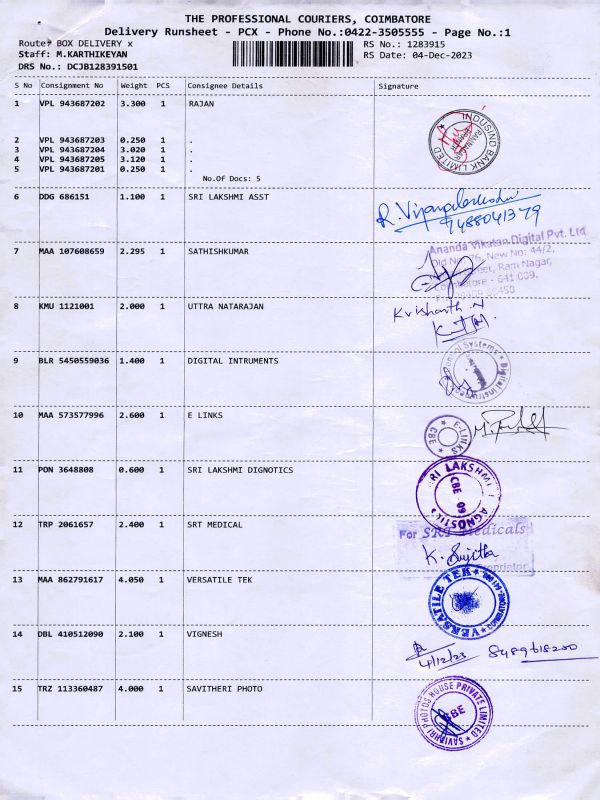 THE PROFESSIONAL COURIERS, COIMBATORE
Delivery Runsheet - PCX - Phone No.:0422-3505555 - Page No.:1
Route? BOX DELIVERY x RS No.: 1283915
Staff: M.KARTHIKEYAN RS Date: 04-Dec-2023
DRS No.: DCJB128391501
S No Consignment No Weight PCS Consignee Details Signature
1 VPL 943687202 3.300 1 RAJAN
INDUSIND BANK LIMITED
2 VPL 943687203 0.250 1 .
3 VPL 943687204 3.020 1 .
4 VPL 943687205 3.120 1 .
5 VPL 943687201 0.250 1 .
No.Of Docs: 5
6 DDG 686151 1.100 1 SRI LAKSHMI ASST
7 MAA 107608659 2.295 1 SATHISHKUMAR
Ananda Vikatan Digital Pvt. Ltd
New No: 44/2,
Street, Ram Nagar,
Coimbatore - 641 009.
8 KMU 1121001 2.000 1 UTTRA NATARAJAN
9 BLR 5450559036 1.400 1 DIGITAL INTRUMENTS
10 MAA 573577996 2.600 1 E LINKS
E-LINKS
CBE
11 PON 3648808 0.600 1 SRI LAKSHMI DIGNOTICS
SRI LAKSHMI
CBE 09
12 TRP 2061657 2.400 1 SRT MEDICAL
For SRT Medicals
K. Sujitha
Proprietor
13 MAA 862791617 4.050 1 VERSATILE TEK
VERSATILE TEK
14 DBL 410512090 2.100 1 VIGNESH
4/12/23
15 TRZ 113360487 4.000 1 SAVITHERI PHOTO
PHOTOS HOUSE PRIVATE LIMITED
CBE